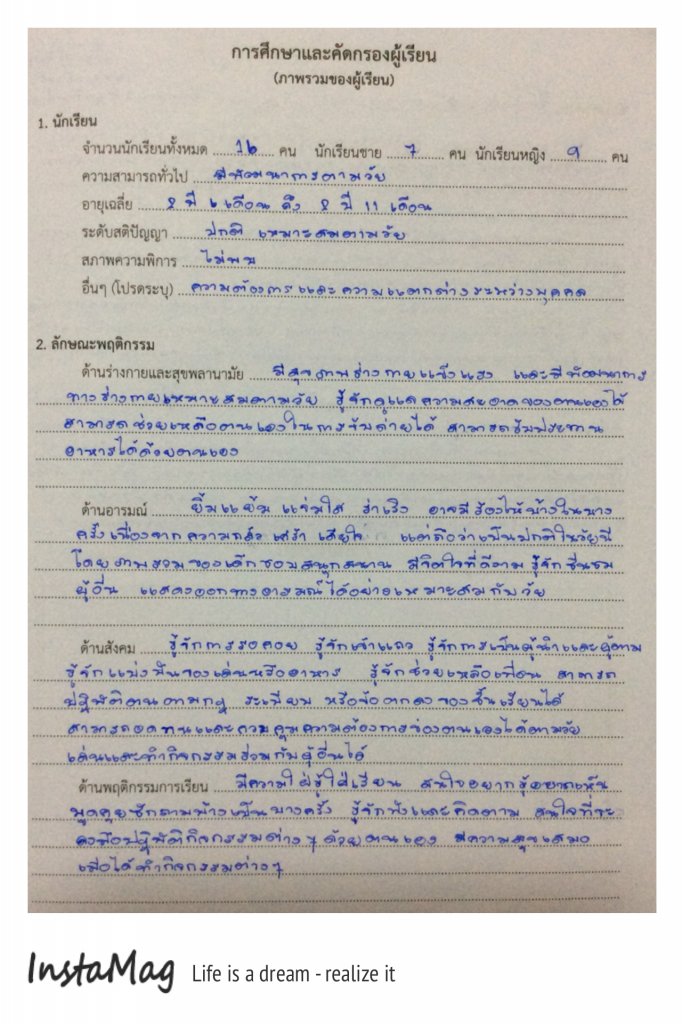 การศึกษาและคัดกรองผู้เรียน
(ภาพรวมของผู้เรียน)
1. นักเรียน
จำนวนนักเรียนทั้งหมด 16 คน นักเรียนชาย 7 คน นักเรียนหญิง 9 คน
ความสามารถทั่วไป มีพัฒนาการตามวัย
อายุเฉลี่ย 2 ปี 6 เดือน ถึง 2 ปี 11 เดือน
ระดับสติปัญญา ปกติ เหมาะสมตามวัย
สภาพความพิการ ไม่พบ
อื่นๆ (โปรดระบุ) ความต้องการและความแตกต่างระหว่างบุคคล
2. ลักษณะพฤติกรรม
ด้านร่างกายและสุขพลานามัย มีสุขภาพร่างกายแข็งแรง และมีพัฒนาการ
ทางร่างกายเหมาะสมตามวัย รู้จักดูแลความสะอาดของตนเองได้
สามารถช่วยเหลือตนเองในการขับถ่ายได้ สามารถรับประทาน
อาหารได้ด้วยตนเอง
ด้านอารมณ์ ยิ้มแย้ม แจ่มใส ร่าเริง อาจมีร้องไห้บ้างในบาง
ครั้งเนื่องจากความกลัว เศร้า เสียใจ แต่ถือว่าเป็นปกติในวัยนี้
โดยภาพรวมของเด็กชอบสนุกสนาน มีจิตใจที่ดีงาม รู้จักชื่นชม
ผู้อื่น แสดงออกทางอารมณ์ได้อย่างเหมาะสมกับวัย
ด้านสังคม รู้จักการรอคอย รู้จักเข้าแถว รู้จักการเป็นผู้นำและผู้ตาม
รู้จักแบ่งปันของเล่นหรืออาหาร รู้จักช่วยเหลือเพื่อน สามารถ
ปฏิบัติตนตามกฎ ระเบียบ หรือข้อตกลงของชั้นเรียนได้
สามารถอดทนและควบคุมความต้องการของตนเองได้ตามวัย
เล่นและทำกิจกรรมร่วมกับผู้อื่นได้
ด้านพฤติกรรมการเรียน มีความใฝ่รู้ใฝ่เรียน สนใจอยากรู้อยากเห็น
พูดคุยซักถามบ้างเป็นบางครั้ง รู้จักฟังและคิดตาม สนใจที่จะ
ลงมือปฏิบัติกิจกรรมต่างๆ ด้วยตนเอง มีความสุขเสมอ
เมื่อได้ทำกิจกรรมต่างๆ
InstaMag Life is a dream - realize it